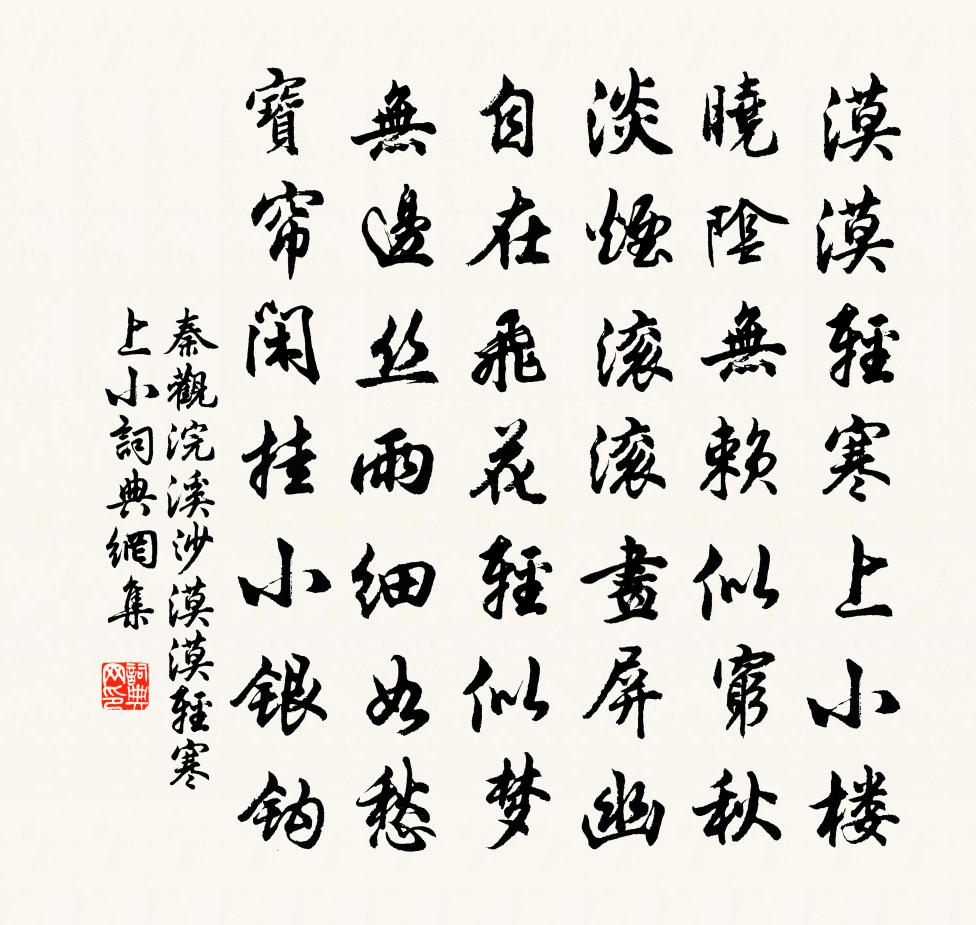 漠漠輕寒上小楼
曉陰無賴似窮秋
淡煙滚滚畫屏幽
自在飛花輕似梦
無邊丝雨細如愁
寶帘閑挂小銀鈎
秦觀浣溪沙漠漠輕寒
上小詞典網集
詞典网印